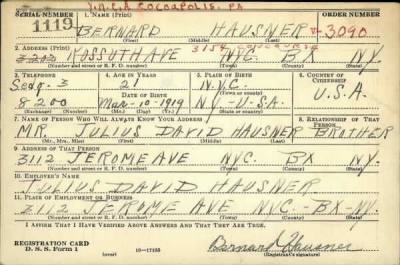 Y.M.C.A. COCOAPOLIS. PA
SERIAL NUMBER 1. NAME (Print) ORDER NUMBER
1119 BERNARD HAUSNER 3090
(First) (Middle) (Last)
2. ADDRESS (Print) 3154
3203 ROSSUTH AVE NYC. BX NY.
(Number and street or R. F. D. number) (Town) (County) (State)
3. TELEPHONE 4. AGE IN YEARS 5. PLACE OF BIRTH 6. COUNTRY OF CITIZENSHIP
Sedg. 3 21 N.Y.C.
8200 Mar-10-1919 NY-U-SA. U.S.A.
(Exchange) (Number) (Mo.) (Day) (Yr.) (State or country)
7. NAME OF PERSON WHO WILL ALWAYS KNOW YOUR ADDRESS 8. RELATIONSHIP OF THAT PERSON
MR. JULIUS DAVID HAUSNER BROTHER
(Mr., Mrs., Miss) (First) (Middle) (Last)
9. ADDRESS OF THAT PERSON
3112 JEROME AVE NYC. BX NY.
(Number and street or R. F. D. number) (Town) (County) (State)
10. EMPLOYER'S NAME
JULIUS DAVID HAUSNER
11. PLACE OF EMPLOYMENT OR BUSINESS
3112 JEROME AVE NYC.-BX-NY.
(Number and street or R. F. D. number) (Town) (County) (State)
I AFFIRM THAT I HAVE VERIFIED ABOVE ANSWERS AND THAT THEY ARE TRUE.
REGISTRATION CARD
D. S. S. Form 1 (over) 16-17105 Bernard Hausner
(Registrant's signature)